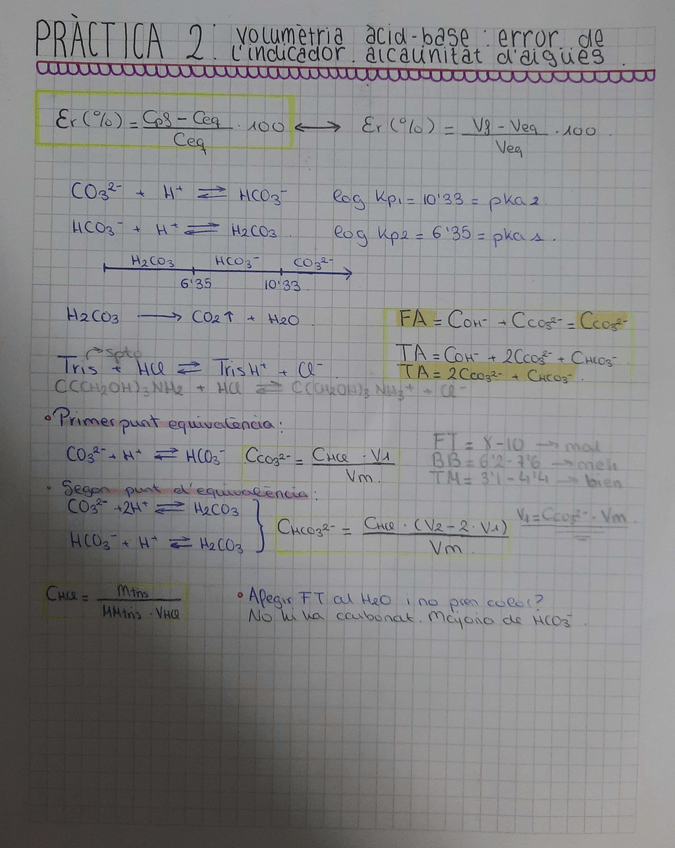 PRÀCTICA 2: volumètria àcid-base: error de
l'indicador. alcalinitat d'aigües.
Er(%) = (Cpf - Ceq / Ceq) · 100 ⟷ Er(%) = (Vf - Veq / Veq) · 100
CO3²⁻ + H⁺ ⇌ HCO3⁻ log Kp1 = 10'33 = pka2
HCO3⁻ + H⁺ ⇌ H2CO3 log Kp2 = 6'35 = pka1
H2CO3 HCO3⁻ CO3²⁻
6'35 10'33
H2CO3 ⟶ CO2↑ + H2O
FA = COH⁻ + CCO3²⁻ = CCO3²⁻
TA = COH⁻ + 2CCO3²⁻ + CHCO3⁻
TA = 2CCO3²⁻ + CHCO3⁻
Tris + HCl ⇌ TrisH⁺ + Cl⁻
C(CH2OH)3NH2 + HCl ⇌ C(CH2OH)3NH3⁺ + Cl⁻
• Primer punt equivalència:
CO3²⁻ + H⁺ ⇌ HCO3⁻ CCO3²⁻ = CHCl · V1 / Vm
FT = 8-10 → mal
BB = 6'2-7'6 → meh
TM = 3'1-4'4 → bien
• Segon punt d'equivalència:
CO3²⁻ + 2H⁺ ⇌ H2CO3
HCO3⁻ + H⁺ ⇌ H2CO3
CHCO3²⁻ = CHCl · (V2 - 2 · V1) / Vm
V1 = CCO3²⁻ · Vm
CHCl = mtris / MMtris · VHCl
• Afegir FT al H2O i no pren color?
No hi ha carbonat. Majoria de HCO3⁻